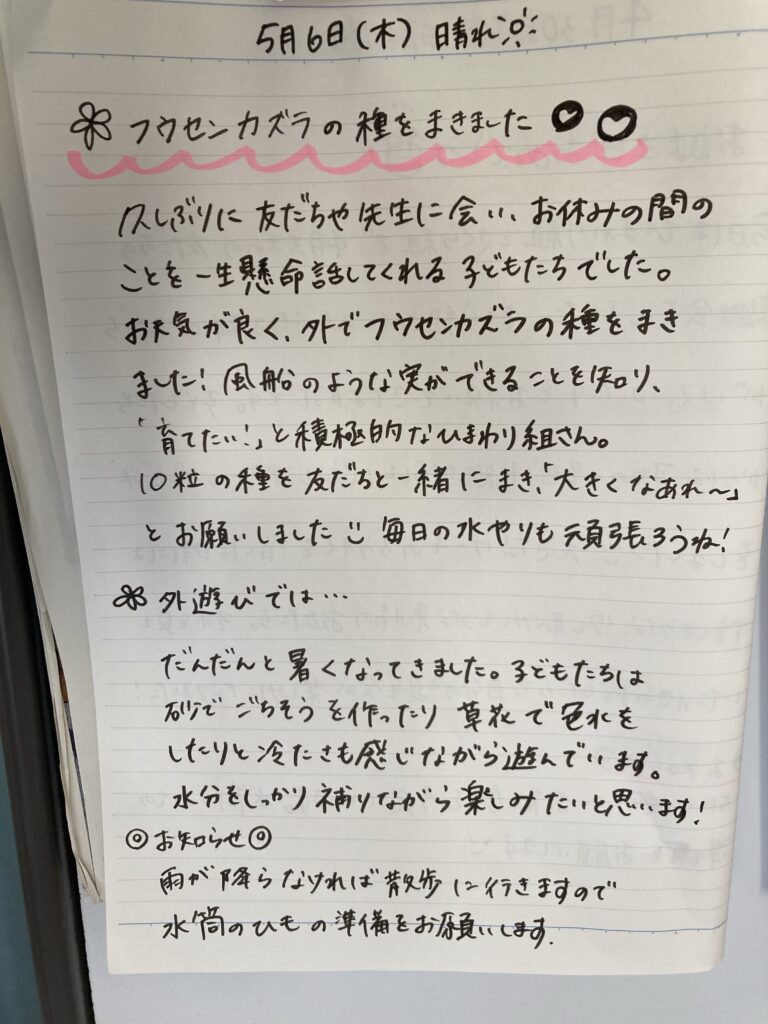 5月6日(木) 晴れ
フウセンカズラの種をまきました
久しぶりに友だちや先生に会い、お休みの間の
ことを一生懸命話してくれる子どもたちでした。
お天気が良く、外でフウセンカズラの種をまき
ました!風船のような実ができることを知り、
「育てたい!」と積極的なひまわり組さん。
10粒の種を友だちと一緒にまき、「大きくなあれ～」
とお願いしました 毎日の水やりも頑張ろうね!
外遊びでは…
だんだんと暑くなってきました。子どもたちは
砂でごちそうを作ったり草花で色水を
したりと冷たさも感じながら遊んでいます。
水分をしっかり補りながら楽しみたいと思います!
◎お知らせ◎
雨が降らなければ散歩に行きますので
水筒のひもの準備をお願いします。